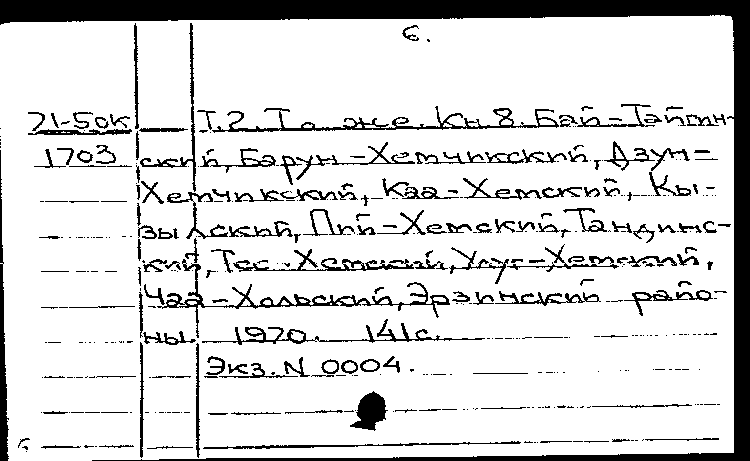 6.
71-50к Т.2. То же. Кн 8. Бай-Тайгин-
1703 ский, Барун-Хемчикский, Дзун-
Хемчикский, Каа-Хемский, Кы-
зылский, Пий-Хемский, Тандинс-
кий, Тес-Хемский, Улуг-Хемский,
Чаа-Хольский, Эрзинский райо-
ны. 1970. 141с.
Экз. N 0004.